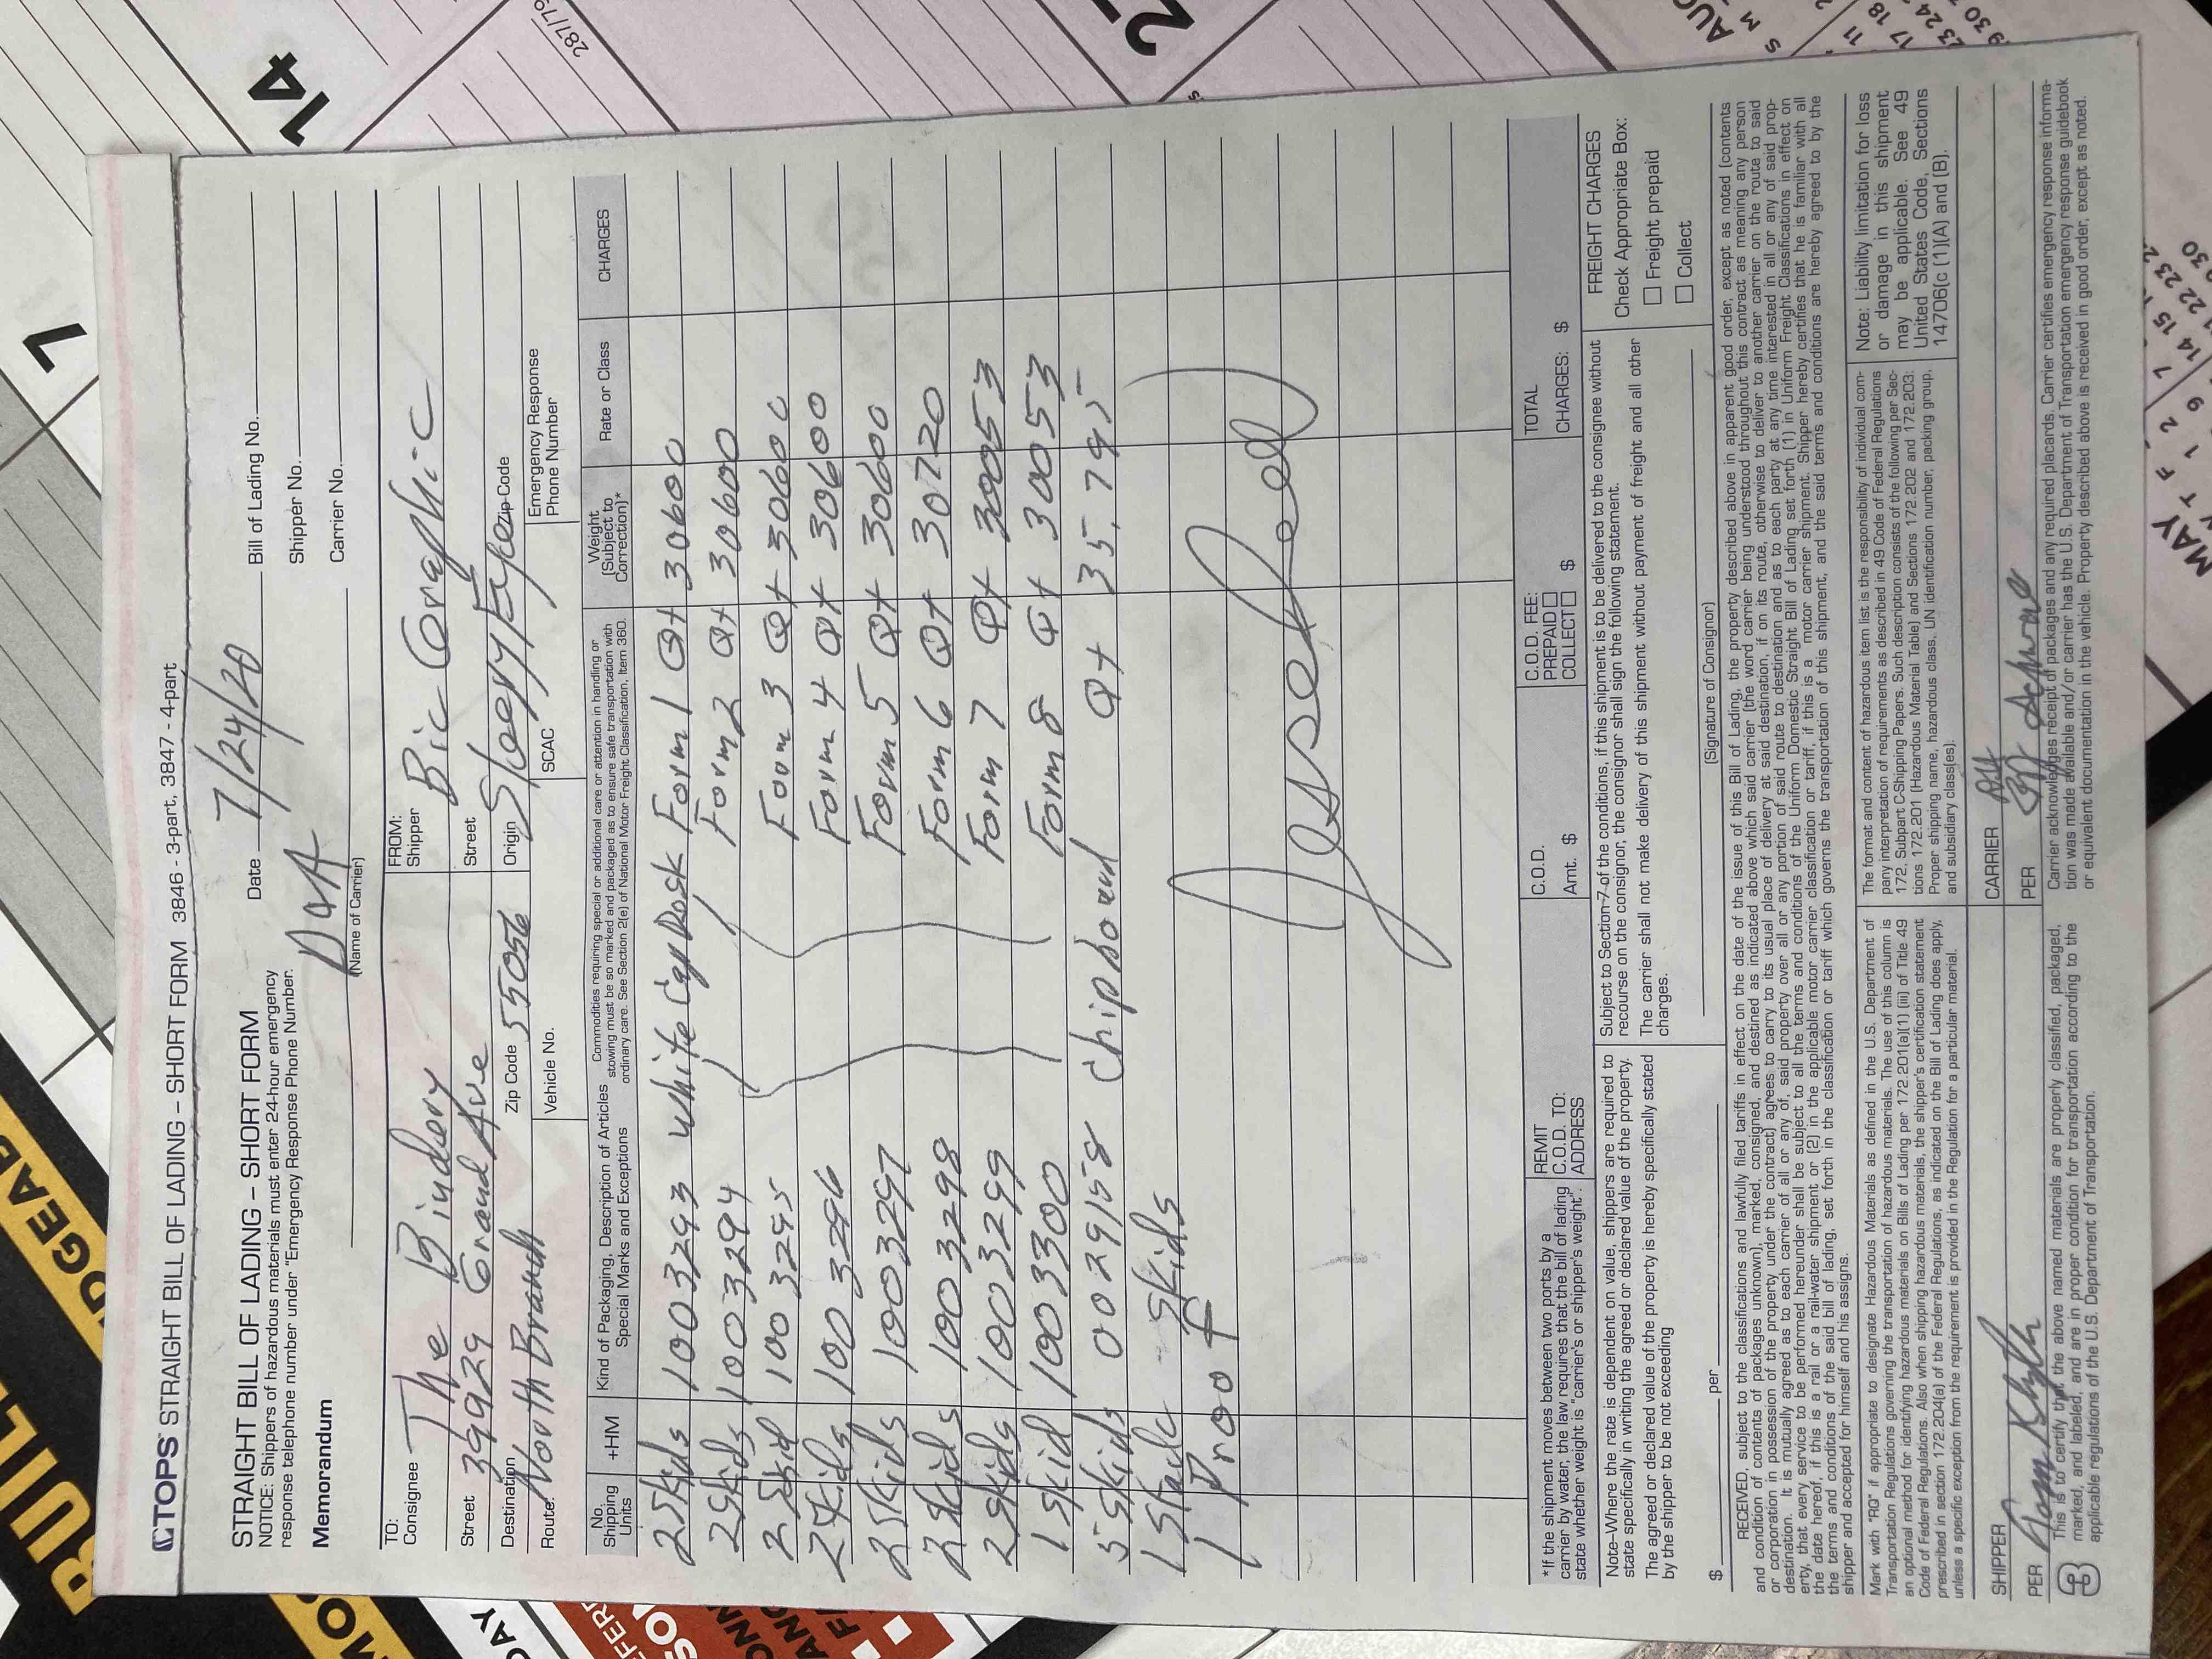 TOPS STRAIGHT BILL OF LADING – SHORT FORM 3846 - 3-part, 3847 - 4-part
STRAIGHT BILL OF LADING – SHORT FORM
NOTICE: Shippers of hazardous materials must enter 24-hour emergency
response telephone number under "Emergency Response Phone Number.
Memorandum
Date 7/24/20
Bill of Lading No.
Shipper No.
Carrier No.
(Name of Carrier)
TO:
Consignee The Bindery
Street 39929 Grand Ave
Destination North Branch Zip Code 55056
FROM:
Shipper Bic Graphic
Street
Origin Sleepy Eye Zip Code
Route:
Vehicle No.
SCAC
Emergency Response
Phone Number
No.
Shipping
Units
+HM
Kind of Packaging, Description of Articles
Special Marks and Exceptions
Commodities requiring special or additional care or attention in handling or
stowing must be so marked and packaged as to ensure safe transportation with
ordinary care. See Section 2(e) of National Motor Freight Classification, Item 360.
Weight
(Subject to
Correction)*
Rate or Class
CHARGES
2 Skids 1003293 White Cap Desk Form 1 Qt 30600
2 Skids 1003294 Form 2 Qt 30600
2 Skid 1003295 Form 3 Qt 30600
2 Skids 1003296 Form 4 Qt 30600
2 Skids 1003297 Form 5 Qt 30600
2 Skids 1003298 Form 6 Qt 30720
2 Skids 1003299 Form 7 Qt 30053
1 Skid 1003300 Form 8 Qt 30053
5 Skids 0029158 Chipboard Qt 35,795
1 Stack Skids
1 Proof
*If the shipment moves between two ports by a
carrier by water, the law requires that the bill of lading
state whether weight is "carrier's or shipper's weight".
REMIT
C.O.D. TO:
ADDRESS
C.O.D.
Amt. $
C.O.D. FEE:
PREPAID
COLLECT $
TOTAL
CHARGES: $
Note–Where the rate is dependent on value, shippers are required to
state specifically in writing the agreed or declared value of the property.
The agreed or declared value of the property is hereby specifically stated
by the shipper to be not exceeding
$ per
Subject to Section 7 of the conditions, if this shipment is to be delivered to the consignee without
recourse on the consignor, the consignor shall sign the following statement.
The carrier shall not make delivery of this shipment without payment of freight and all other
charges.
(Signature of Consignor)
FREIGHT CHARGES
Check Appropriate Box:
Freight prepaid
Collect
RECEIVED, subject to the classifications and lawfully filed tariffs in effect on the date of the issue of this Bill of Lading, the property described above in apparent good order, except as noted (contents
and condition of contents of packages unknown), marked, consigned, and destined as indicated above which said carrier (the word carrier being understood throughout this contract as meaning any person
or corporation in possession of the property under the contract) agrees to carry to its usual place of delivery at said destination, if on its route, otherwise to deliver to another carrier on the route to said
destination. It is mutually agreed as to each carrier of all or any of, said property over all or any portion of said route to destination and as to each party at any time interested in all or any of said prop-
erty, that every service to be performed hereunder shall be subject to all the terms and conditions of the Uniform Domestic Straight Bill of Lading set forth (1) in Uniform Freight Classifications in effect on
the date hereof, if this is a rail or a rail-water shipment or (2) in the applicable motor carrier classification or tariff, if this is a motor carrier shipment. Shipper hereby certifies that he is familiar with all
the terms and conditions of the said bill of lading, set forth in the classification or tariff which governs the transportation of this shipment, and the said terms and conditions are hereby agreed to by the
shipper and accepted for himself and his assigns.
Mark with "RQ" if appropriate to designate Hazardous Materials as defined in the U.S. Department of
Transportation Regulations governing the transportation of hazardous materials. The use of this column is
an optional method for identifying hazardous materials on Bills of Lading per 172.201(a)(1) (iii) of Title 49
Code of Federal Regulations. Also when shipping hazardous materials, the shipper's certification statement
prescribed in section 172.204(a) of the Federal Regulations, as indicated on the Bill of Lading does apply,
unless a specific exception from the requirement is provided in the Regulation for a particular material.
The format and content of hazardous item list is the responsibility of individual com-
pany interpretation of requirements as described in 49 Code of Federal Regulations
172, Subpart C-Shipping Papers. Such description consists of the following per Sec-
tions 172.201 (Hazardous Material Table) and Sections 172.202 and 172.203:
Proper shipping name, hazardous class, UN identification number, packing group,
and subsidiary class(es).
Note: Liability limitation for loss
or damage in this shipment
may be applicable. See 49
United States Code, Sections
14706(c (1)(A) and (B).
SHIPPER
PER
CARRIER
PER
3
This is to certify that the above named materials are properly classified, packaged,
marked, and labeled, and are in proper condition for transportation according to the
applicable regulations of the U.S. Department of Transportation.
Carrier acknowledges receipt of packages and any required placards. Carrier certifies emergency response informa-
tion was made available and/or carrier has the U.S. Department of Transportation emergency response guidebook
or equivalent documentation in the vehicle. Property described above is received in good order, except as noted.
7
14
287/79
AUG
MAY